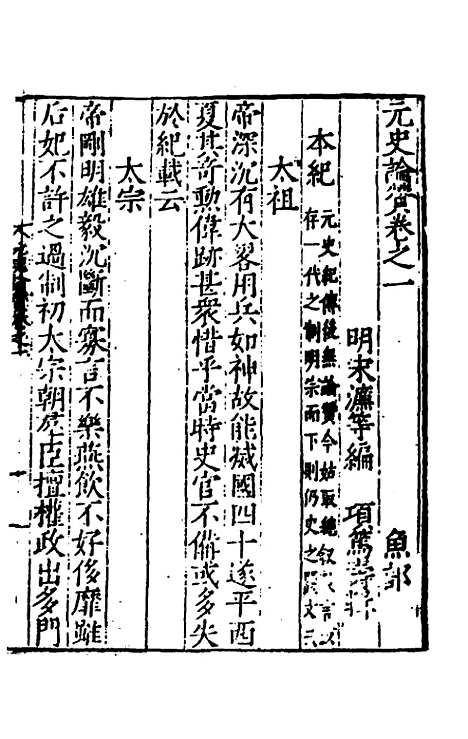 元史論贊卷之一 魚部
明宋濂等編 項篤壽
本紀 元史紀傳後無論贊今姑取總叙
存一代之制明宗而下則仍史之闕文云
太祖
帝深沉有大畧用兵如神故能滅國四十遂平西
夏其奇勳偉跡甚衆惜乎當時史官不備或多失
於紀載云
太宗
帝剛明雄毅沉斷而寡言不樂燕飲不好侈靡雖
后妃不許之過制初太宗朝羣臣擅權政出多門